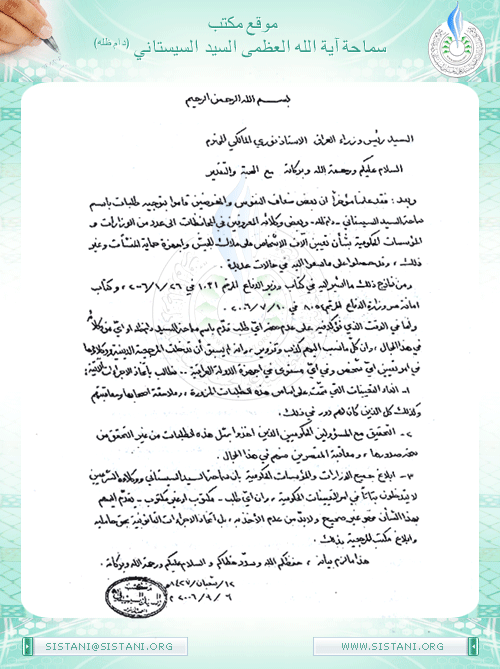 موقع مكتب
سماحة آية الله العظمى السيد السيستاني (دام ظله)
بسم الله الرحمن الرحيم
السيد رئيس وزراء العراق الاستاذ نوري المالكي المحترم
السلام عليكم ورحمة الله وبركاته مع المحبة والتقدير
وبعد : فقد علمنا مؤخراً ان بعض ضعاف النفوس والمغرضين قاموا بتوجيه طلبات باسم
سماحة السيد السيستاني - دام ظله - وبعض وكلائه المعروفين في المحافظات الى عدد من الوزارات و
المؤسسات الحكومية بشأن تعيين آلاف الاشخاص على ملاك الجيش واجهزة حماية المنشآت وغير
ذلك ، وقد حصلوا على ما سعوا اليه في حالات عديدة .
ومن نماذج ذلك ما اشير اليه في كتاب وزير الدفاع المرقم ١٠٣١ في ٢٠٠٦/١/٢٦ ، وكتاب
امانة سر وزارة الدفاع المرقم ٨٠٥٠ في ٢٠٠٦/٧/١٠ .
واننا في الوقت الذي نؤكد فيه على عدم صحة اي طلب قدّم باسم سماحة السيد دام ظله او اي من وكلائه
في هذا المجال ، وان كل ما نسب اليهم كذب وتزوير ، وانه لم يسبق أن تدخلت المرجعية الدينية ووكلاؤها
في امر تعيين اي شخص وفي اي مستوى في اجهزة الدولة العراقية .. نطالب باتخاذ الاجراءات التالية :
١- الغاء التعيينات التي تمّت على اساس هذه الطلبات المزورة ، وملاحقة اصحابها ومعاقبتهم
وكذلك كل الذين كان لهم دور في ذلك .
٢- التحقيق مع المسؤولين الحكوميين الذين اخذوا بمثل هذه الطلبات من غير التحقق من
صحة صدورها ، ومعاقبة المقصرين منهم في هذا المجال .
٣- ابلاغ جميع الوزارات والمؤسسات الحكومية بان سماحة السيد السيستاني ووكلاءه الشرعيين
لا يتدخلون بتاتاً في امر التعيينات الحكومية ، وان اي طلب - مكتوب او غير مكتوب - يقدّم اليهم
بهذا الشأن فهو غير صحيح ولابدّ من عدم الأخذ به ، بل اتخاذ الاجراءات القانونية بحق حامليه
وابلاغ مكتب المرجعية بذلك .
هذا ما لزم بيانه ، حفظكم الله وسدّد خطاكم والسلام عليكم ورحمة الله وبركاته .
١٢/شعبان/١٤٢٧هـ
٢٠٠٦/٩/٦ م
SISTANI@SISTANI.ORG
WWW.SISTANI.ORG